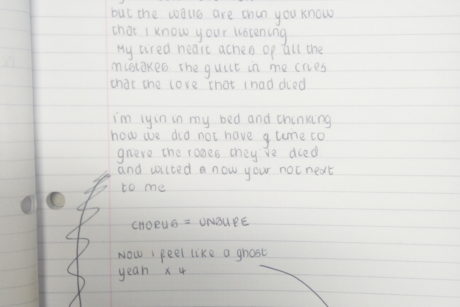 but the walls are thin you know
that I know your listening
My tired heart aches of all the
mistakes the guilt in me cries
that the love that I had died
i'm lyin in my bed and thinking
how we did not have a time to
grieve the roses they've died
and wilted n now your not next
to me
CHORUS = UNSURE
NOW i feel like a ghost
yeah x 4